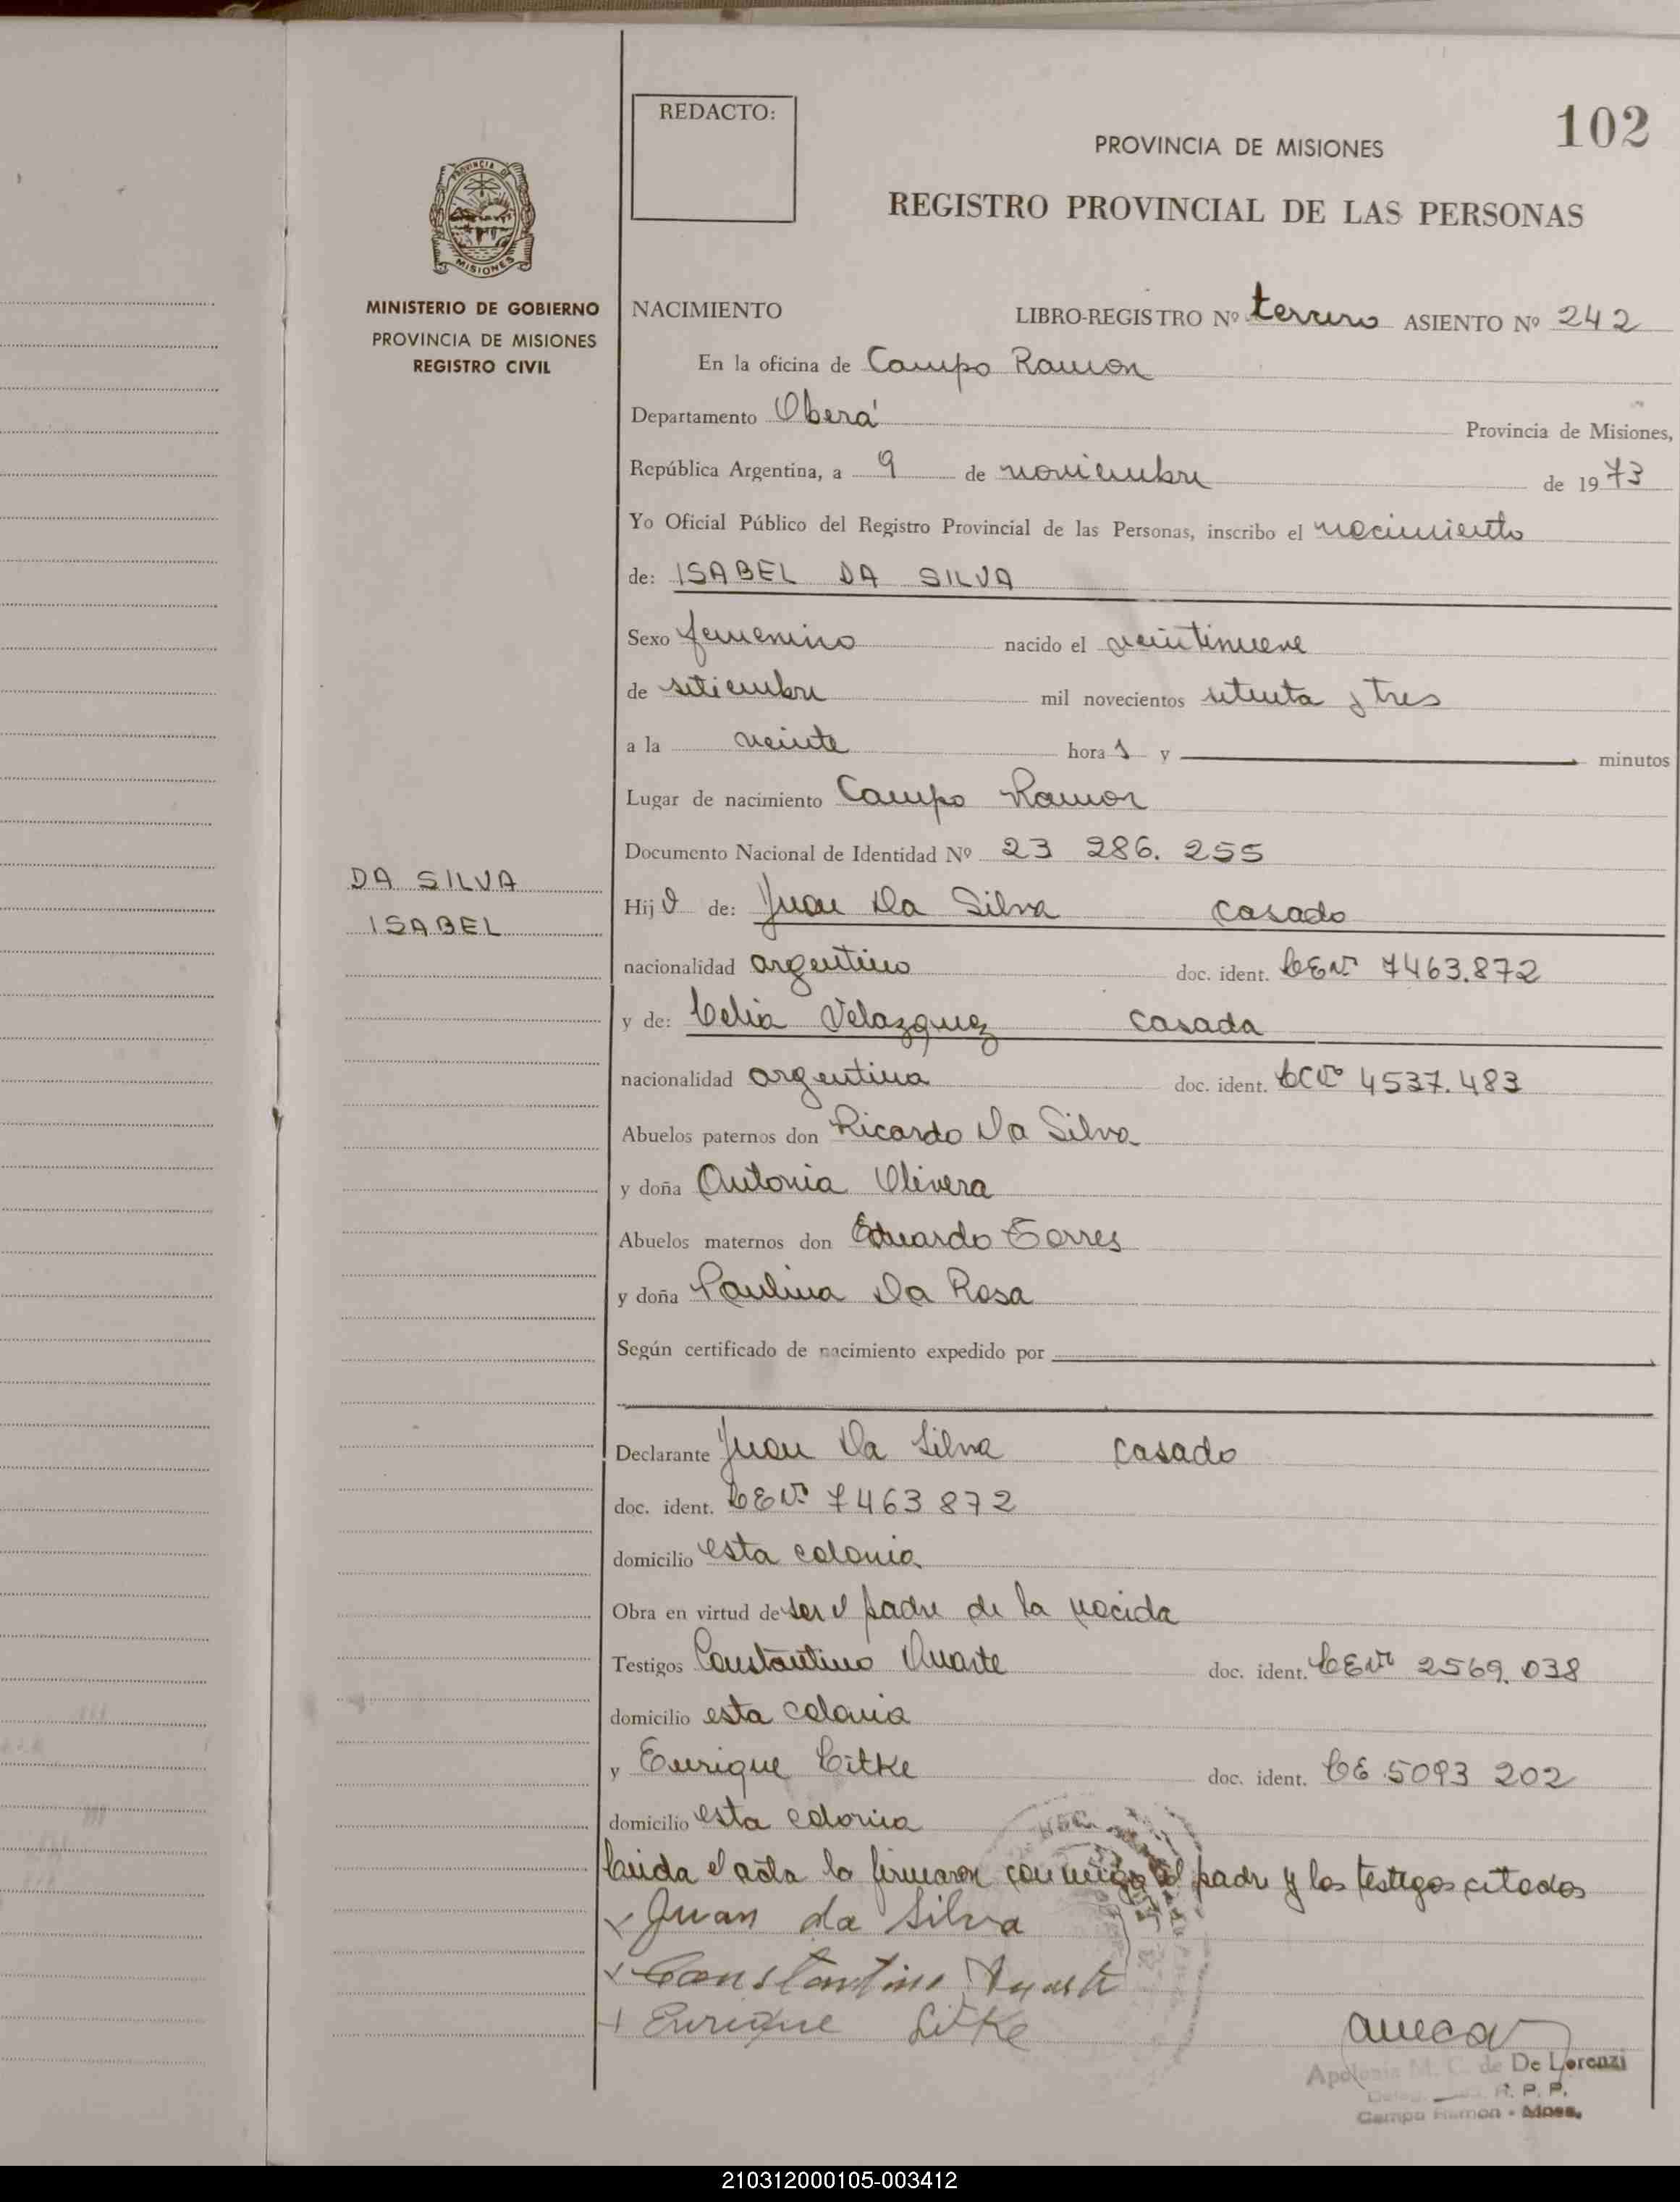 102
REDACTO:
PROVINCIA DE MISIONES
REGISTRO PROVINCIAL DE LAS PERSONAS
PROVINCIA DE
MISIONES
MINISTERIO DE GOBIERNO
PROVINCIA DE MISIONES
REGISTRO CIVIL
NACIMIENTO LIBRO-REGISTRO Nº tercero ASIENTO Nº 242
En la oficina de Campo Ramon
Departamento Oberá Provincia de Misiones,
República Argentina, a 9 de noviembre de 1973
Yo Oficial Público del Registro Provincial de las Personas, inscribo el nacimiento
de: ISABEL DA SILVA
Sexo femenino nacido el veintinueve
de setiembre mil novecientos setenta y tres
a la veinte hora s y minutos
Lugar de nacimiento Campo Ramon
Documento Nacional de Identidad Nº 23 286.255
DA SILVA
ISABEL
Hij de: Juan Da Silva casado
nacionalidad argentino doc. ident. 7463.872
y de: Celia Velazquez casada
nacionalidad argentina doc. ident. 4537.483
Abuelos paternos don Ricardo Da Silva
y doña Antonia Olivera
Abuelos maternos don Eduardo Torres
y doña Paulina Da Rosa
Según certificado de nacimiento expedido por
Declarante Juan Da Silva casado
doc. ident. 7463872
domicilio esta colonia
Obra en virtud de ser el padre de la nacida
Testigos Constantino Duarte doc. ident. 2569.038
domicilio esta colonia
y Enrique Litke doc. ident. 5093 202
domicilio esta colonia
Leida el acta la firmaron conmigo el padre y los testigos citados
Juan da Silva
Constantino Duarte
Enrique Litke
Apolonia M. C. de De Lorenzi
R. P. P.
Campo Ramon - Mnes.
210312000105-003412